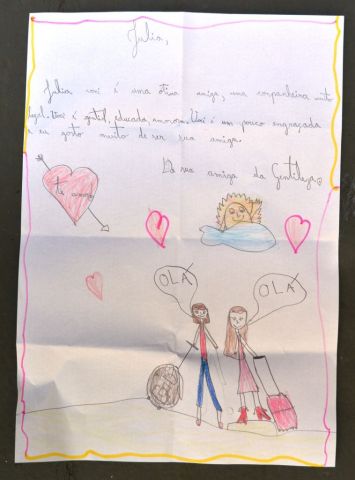 Julia,
Julia você é uma ótima amiga, uma companheira muito
legal. Você é gentil, educada, amorosa. Você é um pouco engraçada
e eu gosto muito de ser sua amiga.
De sua amiga da Gentileza.
te amo
OLÁ
OLÁ